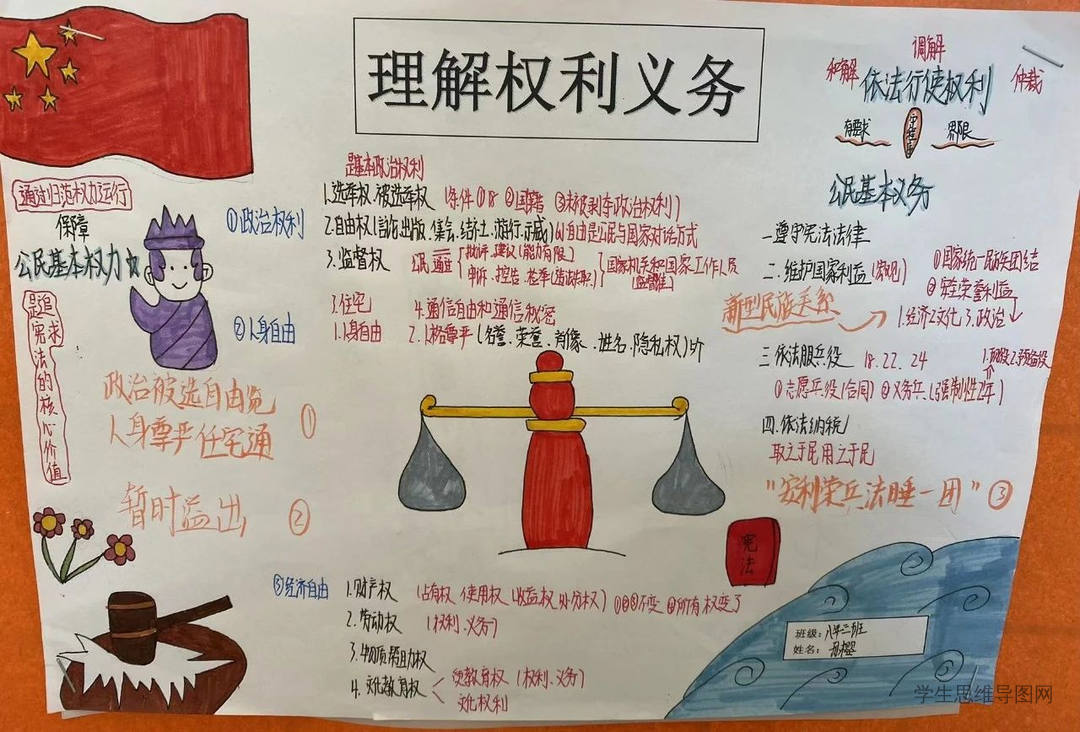 理解权利义务
调解
和解 依法行使权利 仲裁
有要求 界限
公民基本义务
通过归范权力运行
保障
公民基本权力
是追求宪法的核心价值
①政治权利
是基本政治权利
1.选举权.被选举权 (条件①18 ②国籍 ③未被剥夺政治权利)
2.自由权(言论.出版.集会.结社.游行.示威)
自由是公民与国家对话方式
3.监督权
批评.建议(能力有限)
申诉.控告.检举
国家机关和国家工作人员
②人身自由
3.住宅 4.通信自由和通信秘密
1.人身自由 2.人格尊严(名誉.荣誉.肖像.姓名.隐私权)
政治被选自由览
人身尊严住宅通 ①
暂时溢出 ②
一遵守宪法法律
二.维护国家利益
①国家统一民族团结
②安全荣誉利益
新型民族关系
1.经济2.文化3.政治
三.依法服兵役 18.22.24
①志愿兵役(合同) ②义务兵(强制性2年)
四.依法纳税
取之于民用之于民
"安利荣兵法睡一团" ③
宪法
③经济自由
1.财产权 (占有权 使用权 收益权 处分权) ①②③不变 ④所有权变了
2.劳动权 (权利.义务)
3.物质帮助权
4.文化教育权
受教育权 (权利.义务)
文化权利
班级:八年二班
姓名:
学生思维导图网